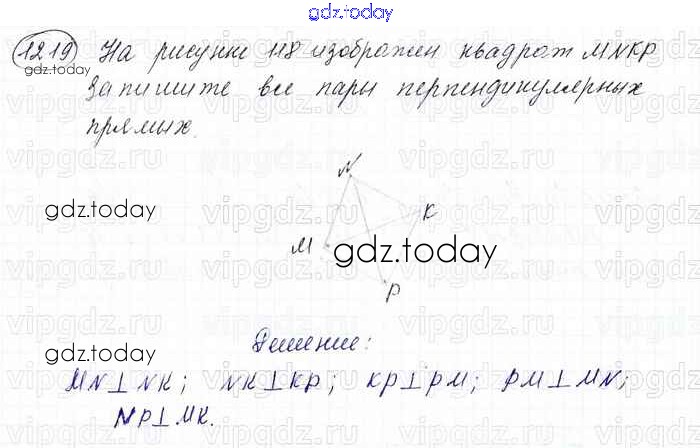 gdz.today
1219 На рисунке 118 изображен квадрат MNKP
gdz.today
Запишите все пары перпендикулярных
прямых.
N
gdz.today
K
M
gdz.today
P
Решение:
gdz.today
MN⊥NK; NK⊥KP; KP⊥PM; PM⊥MN;
NP⊥MK.